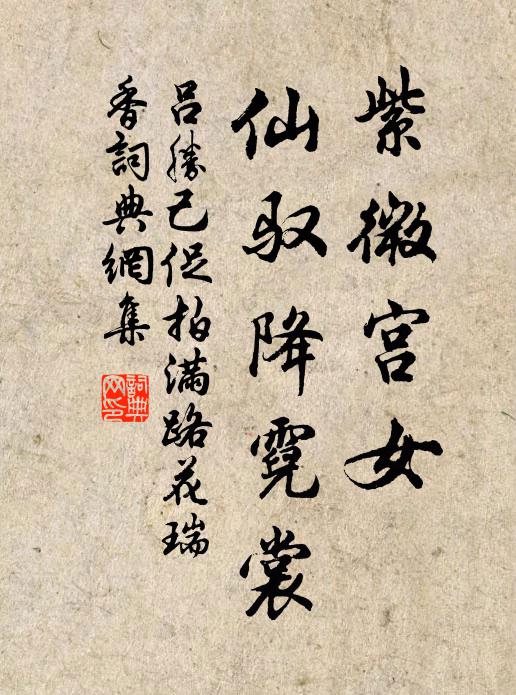 紫微宫女
仙驭降霓裳
吕勝己促拍满路花瑞
香詞典網集
詞典
网印